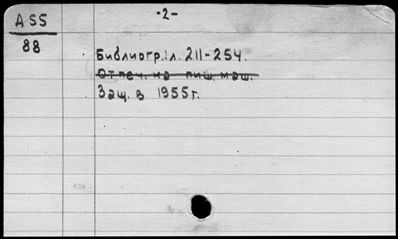 -2-
A55
88
Библиогр.: л. 211-254.
Отпеч. на пиш. маш.
Защ. в 1955г.